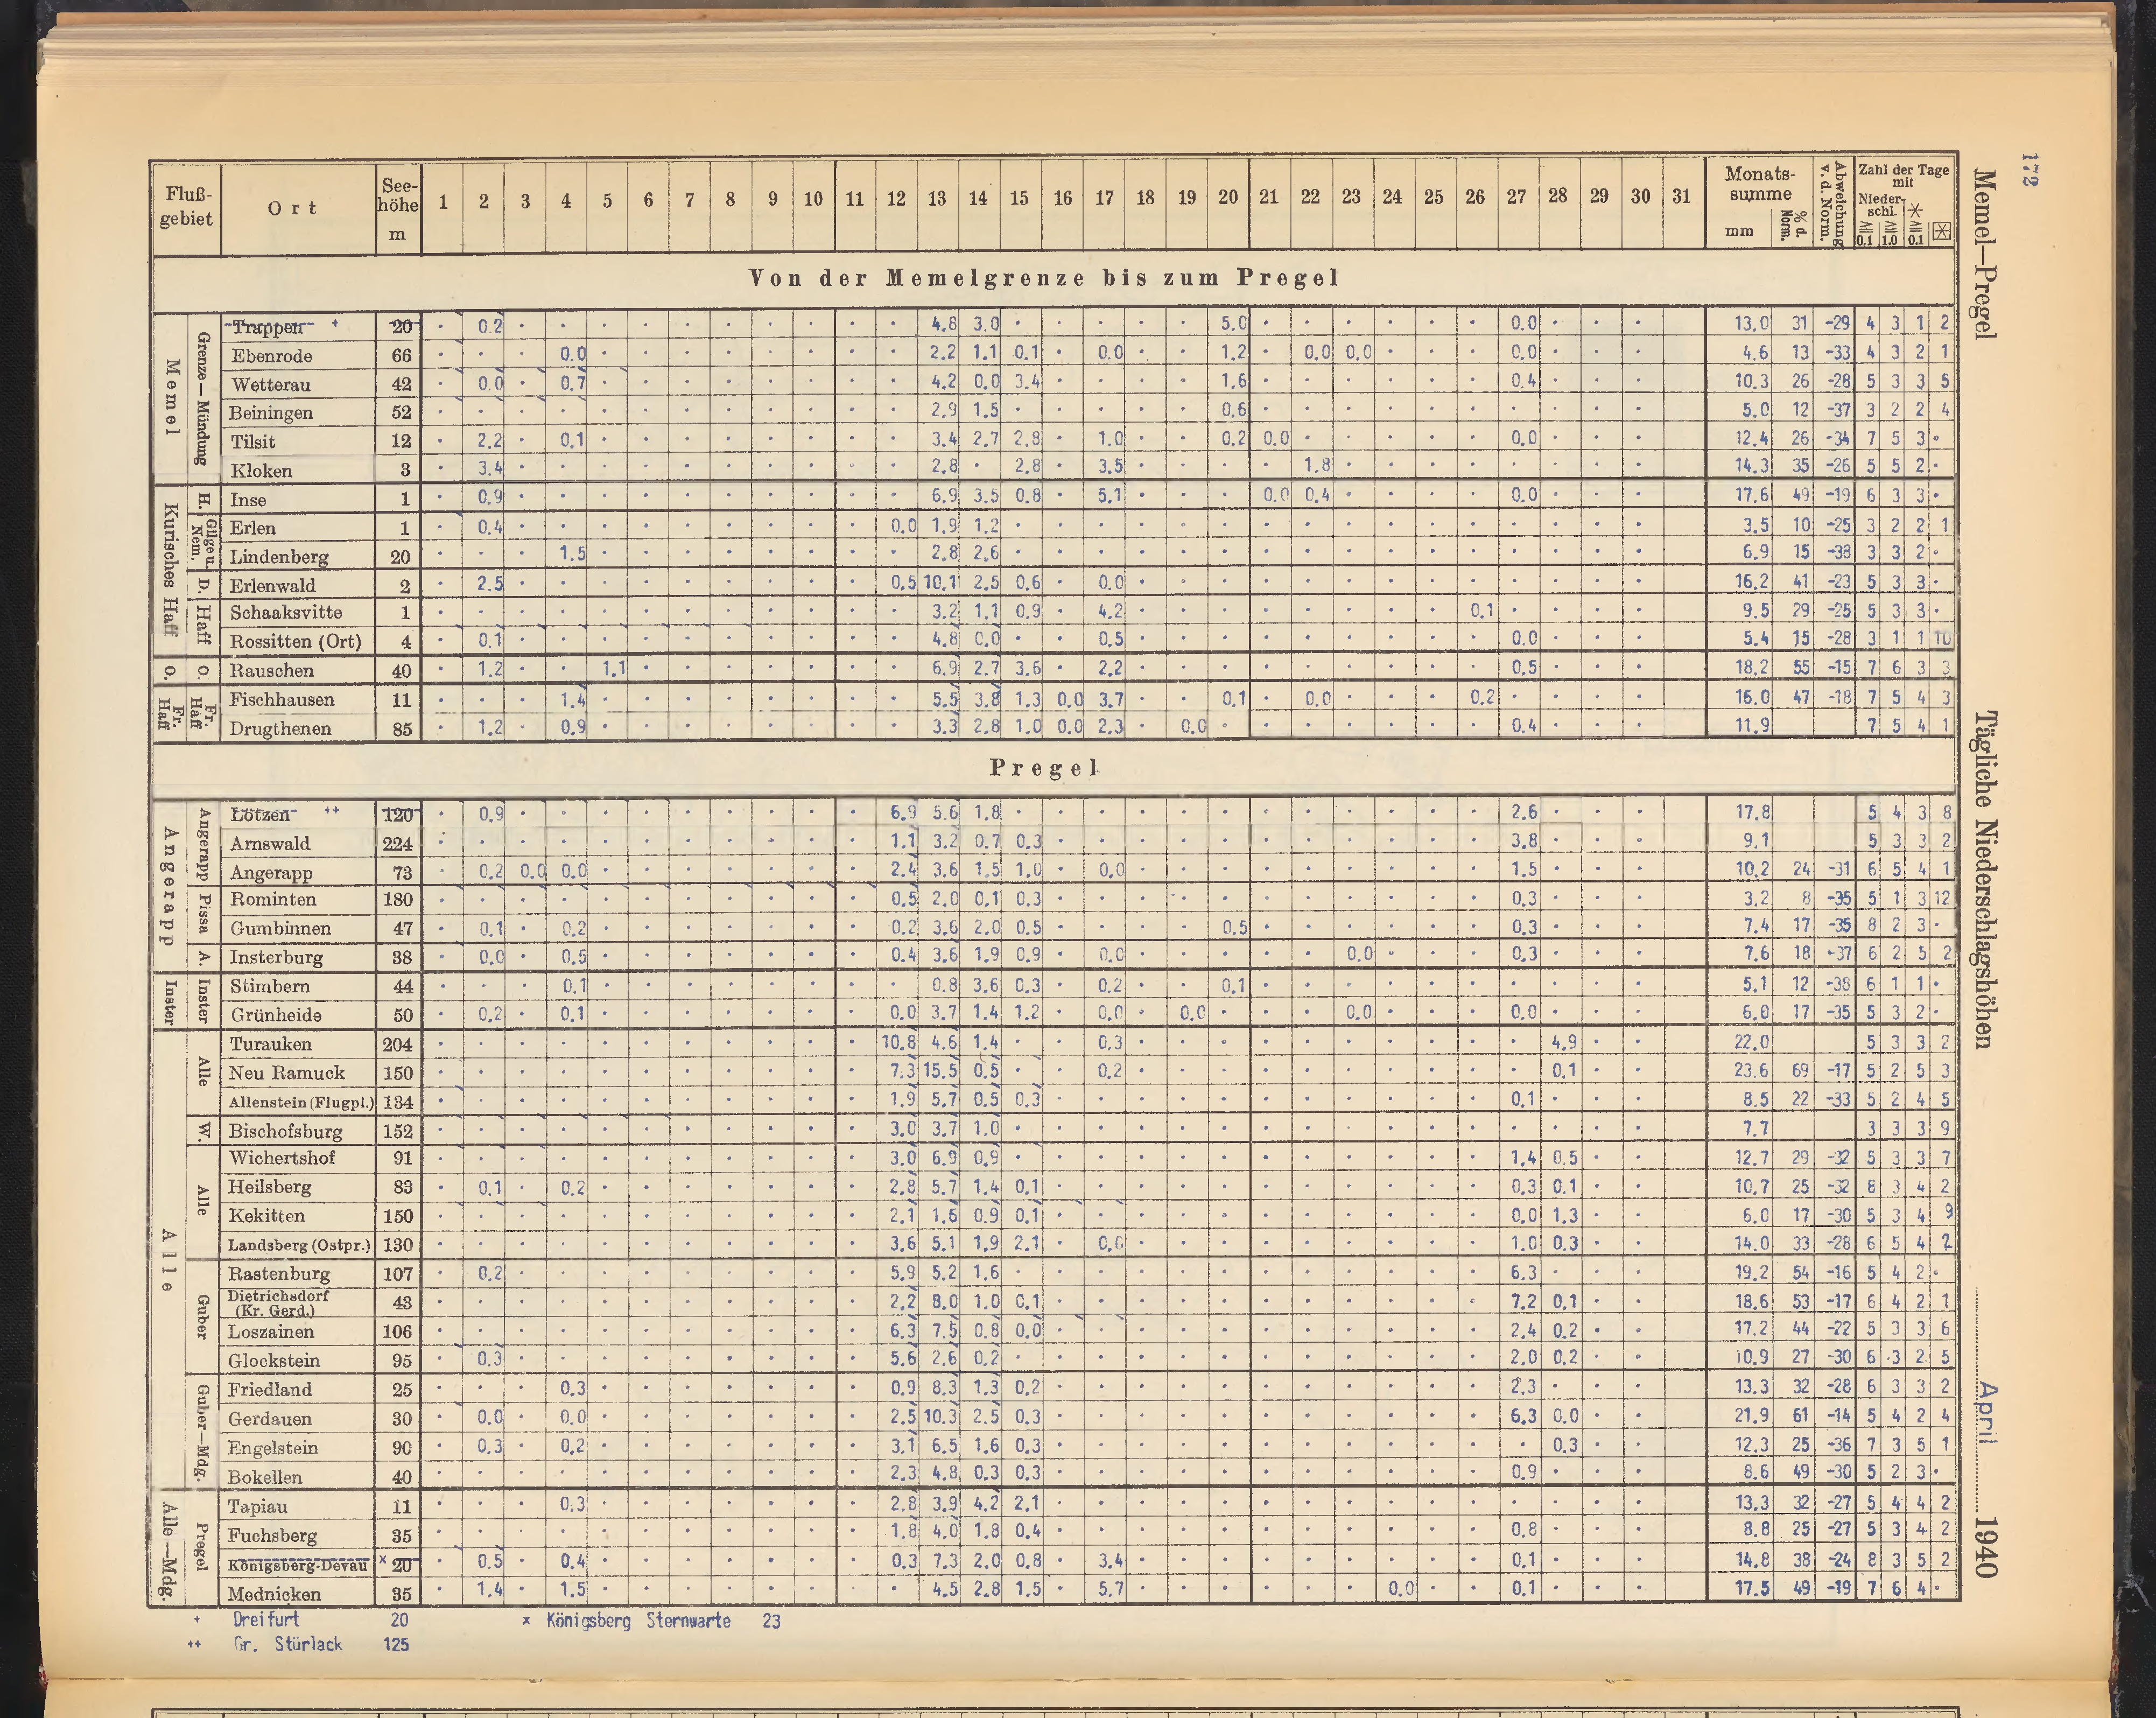 172
Memel—Pregel
Tägliche Niederschlagshöhen
April 1940
Fluß-gebiet Ort See-höhe m 1 2 3 4 5 6 7 8 9 10 11 12 13 14 15 16 17 18 19 20 21 22 23 24 25 26 27 28 29 30 31 Monats-summe mm % d. Norm. Abweichung v. d. Norm. Zahl der Tage mit Nieder-schl. ≧ 0.1 ≧ 1.0 ≧ 0.1
Von der Memelgrenze bis zum Pregel
Memel Grenze—Mündung
Trappen + 20 · 0.2 · · · · · · · · · · 4.8 3.0 · · · · · 5.0 · · · · · · 0.0 · · · 13.0 31 -29 4 3 1 2
Ebenrode 66 · · · 0.0 · · · · · · · · 2.2 1.1 0.1 · 0.0 · · 1.2 · 0.0 0.0 · · · 0.0 · · · 4.6 13 -33 4 3 2 1
Wetterau 42 · 0.0 · 0.7 · · · · · · · · 4.2 0.0 3.4 · · · · 1.6 · · · · · · 0.4 · · · 10.3 26 -28 5 3 3 5
Beiningen 52 · · · · · · · · · · · · 2.9 1.5 · · · · · 0.6 · · · · · · · · · · 5.0 12 -37 3 2 2 4
Tilsit 12 · 2.2 · 0.1 · · · · · · · · 3.4 2.7 2.8 · 1.0 · · 0.2 0.0 · · · · · 0.0 · · · 12.4 26 -34 7 5 3 ·
Kloken 3 · 3.4 · · · · · · · · · · 2.8 · 2.8 · 3.5 · · · · 1.8 · · · · · · · · 14.3 35 -26 5 5 2 ·
Kurisches Haff H. Gilge u. Nem. D. Haff
Inse 1 · 0.9 · · · · · · · · · · 6.9 3.5 0.8 · 5.1 · · · 0.0 0.4 · · · · 0.0 · · · 17.6 49 -19 6 3 3 ·
Erlen 1 · 0.4 · · · · · · · · · 0.0 1.9 1.2 · · · · · · · · · · · · · · · · 3.5 10 -25 3 2 2 1
Lindenberg 20 · · · 1.5 · · · · · · · · 2.8 2.6 · · · · · · · · · · · · · · · · 6.9 15 -38 3 3 2 ·
Erlenwald 2 · 2.5 · · · · · · · · · 0.5 10.1 2.5 0.6 · 0.0 · · · · · · · · · · · · · 16.2 41 -23 5 3 3 ·
Schaaksvitte 1 · · · · · · · · · · · · 3.2 1.1 0.9 · 4.2 · · · · · · · · 0.1 · · · · 9.5 29 -25 5 3 3 ·
Rossitten (Ort) 4 · 0.1 · · · · · · · · · · 4.8 0.0 · · 0.5 · · · · · · · · · 0.0 · · · 5.4 15 -28 3 1 1 10
O. O. Rauschen 40 · 1.2 · · 1.1 · · · · · · · 6.9 2.7 3.6 · 2.2 · · · · · · · · · 0.5 · · · 18.2 55 -15 7 6 3 3
Fr. Haff Fr. Haff
Fischhausen 11 · · · 1.4 · · · · · · · · 5.5 3.8 1.3 0.0 3.7 · · 0.1 · 0.0 · · · 0.2 · · · · 16.0 47 -18 7 5 4 3
Drugthenen 85 · 1.2 · 0.9 · · · · · · · · 3.3 2.8 1.0 0.0 2.3 · 0.0 · · · · · · · 0.4 · · · 11.9 7 5 4 1
Pregel
Angerapp Angerapp
Lötzen ++ 120 · 0.9 · · · · · · · · · 6.9 5.6 1.8 · · · · · · · · · · · · 2.6 · · · 17.8 5 4 3 8
Arnswald 224 · · · · · · · · · · · 1.1 3.2 0.7 0.3 · · · · · · · · · · · 3.8 · · · 9.1 5 3 3 2
Angerapp 73 · 0.2 0.0 0.0 · · · · · · · 2.4 3.6 1.5 1.0 · 0.0 · · · · · · · · · 1.5 · · · 10.2 24 -31 6 5 4 1
Pissa
Rominten 180 · · · · · · · · · · · 0.5 2.0 0.1 0.3 · · · · · · · · · · · 0.3 · · · 3.2 8 -35 5 1 3 12
Gumbinnen 47 · 0.1 · 0.2 · · · · · · · 0.2 3.6 2.0 0.5 · · · · 0.5 · · · · · · 0.3 · · · 7.4 17 -35 8 2 3 ·
A. Insterburg 38 · 0.0 · 0.5 · · · · · · · 0.4 3.6 1.9 0.9 · 0.0 · · · · · 0.0 · · · 0.3 · · · 7.6 18 -37 6 2 5 2
Inster Inster
Stimbern 44 · · · 0.1 · · · · · · · · 0.8 3.6 0.3 · 0.2 · · 0.1 · · · · · · · · · · 5.1 12 -38 6 1 1 ·
Grünheide 50 · 0.2 · 0.1 · · · · · · · 0.0 3.7 1.4 1.2 · 0.0 · 0.0 · · · 0.0 · · · 0.0 · · · 6.0 17 -35 5 3 2 ·
Alle Alle
Turauken 204 · · · · · · · · · · · 10.8 4.6 1.4 · · 0.3 · · · · · · · · · · 4.9 · · 22.0 5 3 3 2
Neu Ramuck 150 · · · · · · · · · · · 7.3 15.5 0.5 · · 0.2 · · · · · · · · · · 0.1 · · 23.6 69 -17 5 2 5 3
Allenstein (Flugpl.) 134 · · · · · · · · · · · 1.9 5.7 0.5 0.3 · · · · · · · · · · · 0.1 · · · 8.5 22 -33 5 2 4 5
W. Bischofsburg 152 · · · · · · · · · · · 3.0 3.7 1.0 · · · · · · · · · · · · · · · · 7.7 3 3 3 9
Alle
Wichertshof 91 · · · · · · · · · · · 3.0 6.9 0.9 · · · · · · · · · · · · 1.4 0.5 · · 12.7 29 -32 5 3 3 7
Heilsberg 83 · 0.1 · 0.2 · · · · · · · 2.8 5.7 1.4 0.1 · · · · · · · · · · · 0.3 0.1 · · 10.7 25 -32 8 3 4 2
Kekitten 150 · · · · · · · · · · · 2.1 1.6 0.9 0.1 · · · · · · · · · · · 0.0 1.3 · · 6.0 17 -30 5 3 4 9
Landsberg (Ostpr.) 130 · · · · · · · · · · · 3.6 5.1 1.9 2.1 · 0.0 · · · · · · · · · 1.0 0.3 · · 14.0 33 -28 6 5 4 2
Guber
Rastenburg 107 · 0.2 · · · · · · · · · 5.9 5.2 1.6 · · · · · · · · · · · · 6.3 · · · 19.2 54 -16 5 4 2 ·
Dietrichsdorf (Kr. Gerd.) 43 · · · · · · · · · · · 2.2 8.0 1.0 0.1 · · · · · · · · · · · 7.2 0.1 · · 18.6 53 -17 6 4 2 1
Loszainen 106 · · · · · · · · · · · 6.3 7.5 0.8 0.0 · · · · · · · · · · · 2.4 0.2 · · 17.2 44 -22 5 3 3 6
Glockstein 95 · 0.3 · · · · · · · · · 5.6 2.6 0.2 · · · · · · · · · · · · 2.0 0.2 · · 10.9 27 -30 6 3 2 5
Guber—Mdg.
Friedland 25 · · · 0.3 · · · · · · · 0.9 8.3 1.3 0.2 · · · · · · · · · · · 2.3 · · · 13.3 32 -28 6 3 3 2
Gerdauen 30 · 0.0 · 0.0 · · · · · · · 2.5 10.3 2.5 0.3 · · · · · · · · · · · 6.3 0.0 · · 21.9 61 -14 5 4 2 4
Engelstein 90 · 0.3 · 0.2 · · · · · · · 3.1 6.5 1.6 0.3 · · · · · · · · · · · · 0.3 · · 12.3 25 -36 7 3 5 1
Bokellen 40 · · · · · · · · · · · 2.3 4.8 0.3 0.3 · · · · · · · · · · · 0.9 · · · 8.6 49 -30 5 2 3 ·
Alle—Mdg. Pregel
Tapiau 11 · · · 0.3 · · · · · · · 2.8 3.9 4.2 2.1 · · · · · · · · · · · · · · · 13.3 32 -27 5 4 4 2
Fuchsberg 35 · · · · · · · · · · · 1.8 4.0 1.8 0.4 · · · · · · · · · · · 0.8 · · · 8.8 25 -27 5 3 4 2
Königsberg-Devau × 20 · 0.5 · 0.4 · · · · · · · 0.3 7.3 2.0 0.8 · 3.4 · · · · · · · · · 0.1 · · · 14.8 38 -24 8 3 5 2
Mednicken 35 · 1.4 · 1.5 · · · · · · · · 4.5 2.8 1.5 · 5.7 · · · · · · 0.0 · · 0.1 · · · 17.5 49 -19 7 6 4 ·
+ Dreifurt 20 × Königsberg Sternwarte 23
++ Gr. Stürlack 125